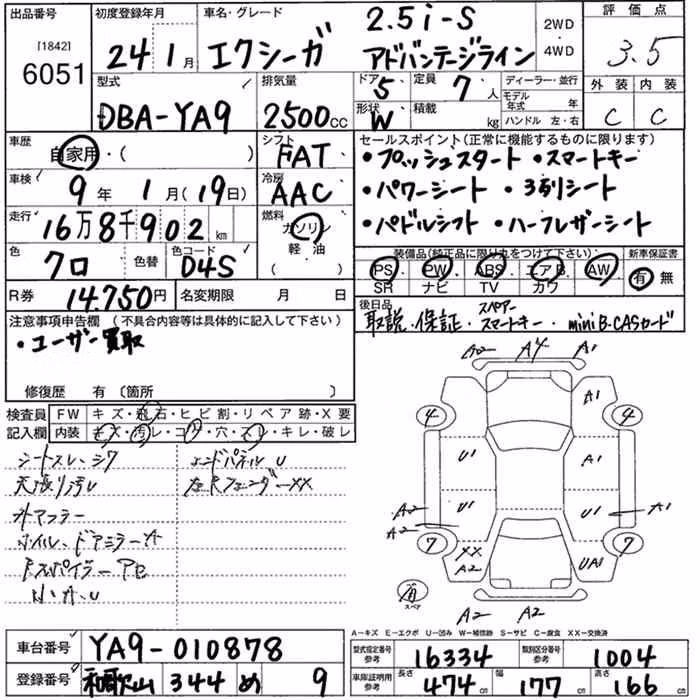 出品番号
[1842]
6051
初度登録年月
24 1月
車名・グレード
エクシーガ
2.5i-S
アドバンテージライン
2WD
・
4WD
評価点
3.5
外装 内装
C C
型式
DBA-YA9
排気量
2500CC
ドア 5
定員 7人
形状 W
積載 kg
ディーラー・並行
モデル年式 年
ハンドル 左・右
車歴
自家用・( )
シフト
FAT
車検
9年 1月(19日)
冷房
AAC
走行
16万8千902km
燃料
ガソリン
軽・油
( )
色
クロ
色替
色コード
D4S
R券 14,750円
名変期限 月 日
セールスポイント(正常に機能するものに限ります)
・プッシュスタート ・スマートキー
・パワーシート ・3列シート
・パドルシフト ・ハーフレザーシート
装備品(純正品に限り丸をつけて下さい)
新車保証書
PS・PW・ABS・エアB・AW
SR ナビ TV カワ
有・無
後日品
取説・保証・スペアースマートキー・miniB-CASカード
注意事項申告欄 (不具合内容等は具体的に記入して下さい)
・ユーザー買取
修復歴 有 〔箇所 〕
検査員
記入欄
FW キズ・飛石・ヒビ割・リペア跡・X要
内装 キズ・汚レ・コゲ・穴・スレ・キレ・破レ
シートスレ、シワ
エンドパネルU
天張り汚レ
左Rフェンダー XX
外マフラー
ホイル、ドアミラーA
A2 A4 A1
A1
4 4
U1 A1
U1 U1
A2 A1
A2
7 7
XX
A2
UA1
有
スペア
A2 A2
A―キズ E―エクボ U―凹み W―補修跡 S―サビ C―腐食 XX―交換済
車台番号 YA9-010878
登録番号 和歌山 344 め 9
型式指定番号
参考
16334
類別区分番号
参考
1004
車庫証明用
参考
長さ 474cm
幅 177cm
高さ 166cm